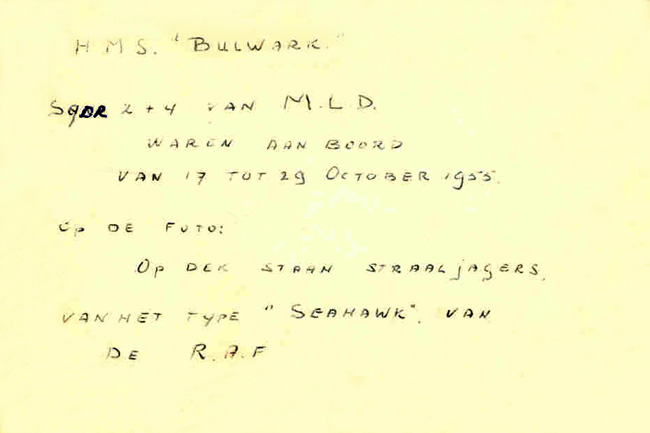 HMS. "BULWARK."
SQDR 2 + 4 VAN M.L.D.
WAREN AAN BOORD
VAN 17 TOT 29 OCTOBER 1955.
OP DE FOTO:
OP DEK STAAN STRAALJAGERS
VAN HET TYPE "SEAHAWK". VAN
DE R.A.F